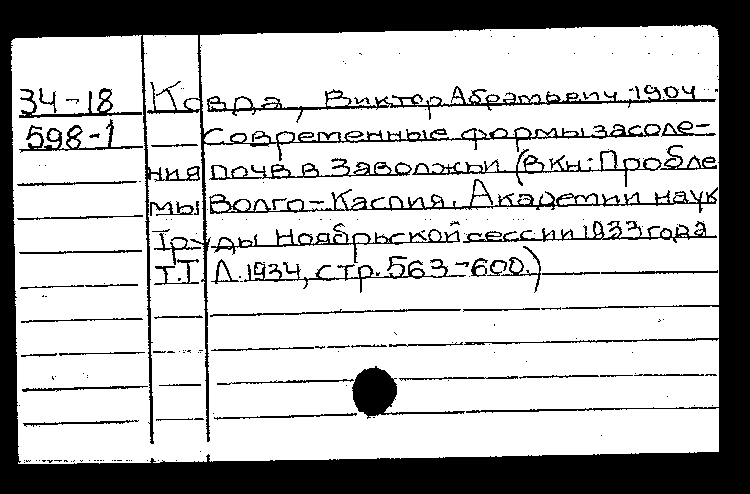 34-18 Ковда, Виктор Абрамьевич, 1904
598-1 Современные формы засоле-
ния почв в Заволжьи (В кн: Пробле
мы Волго-Каспия. Академии наук
Труды Ноябрьской сессии 1933 года
Т.I. Л. 1934, стр. 563-600.)